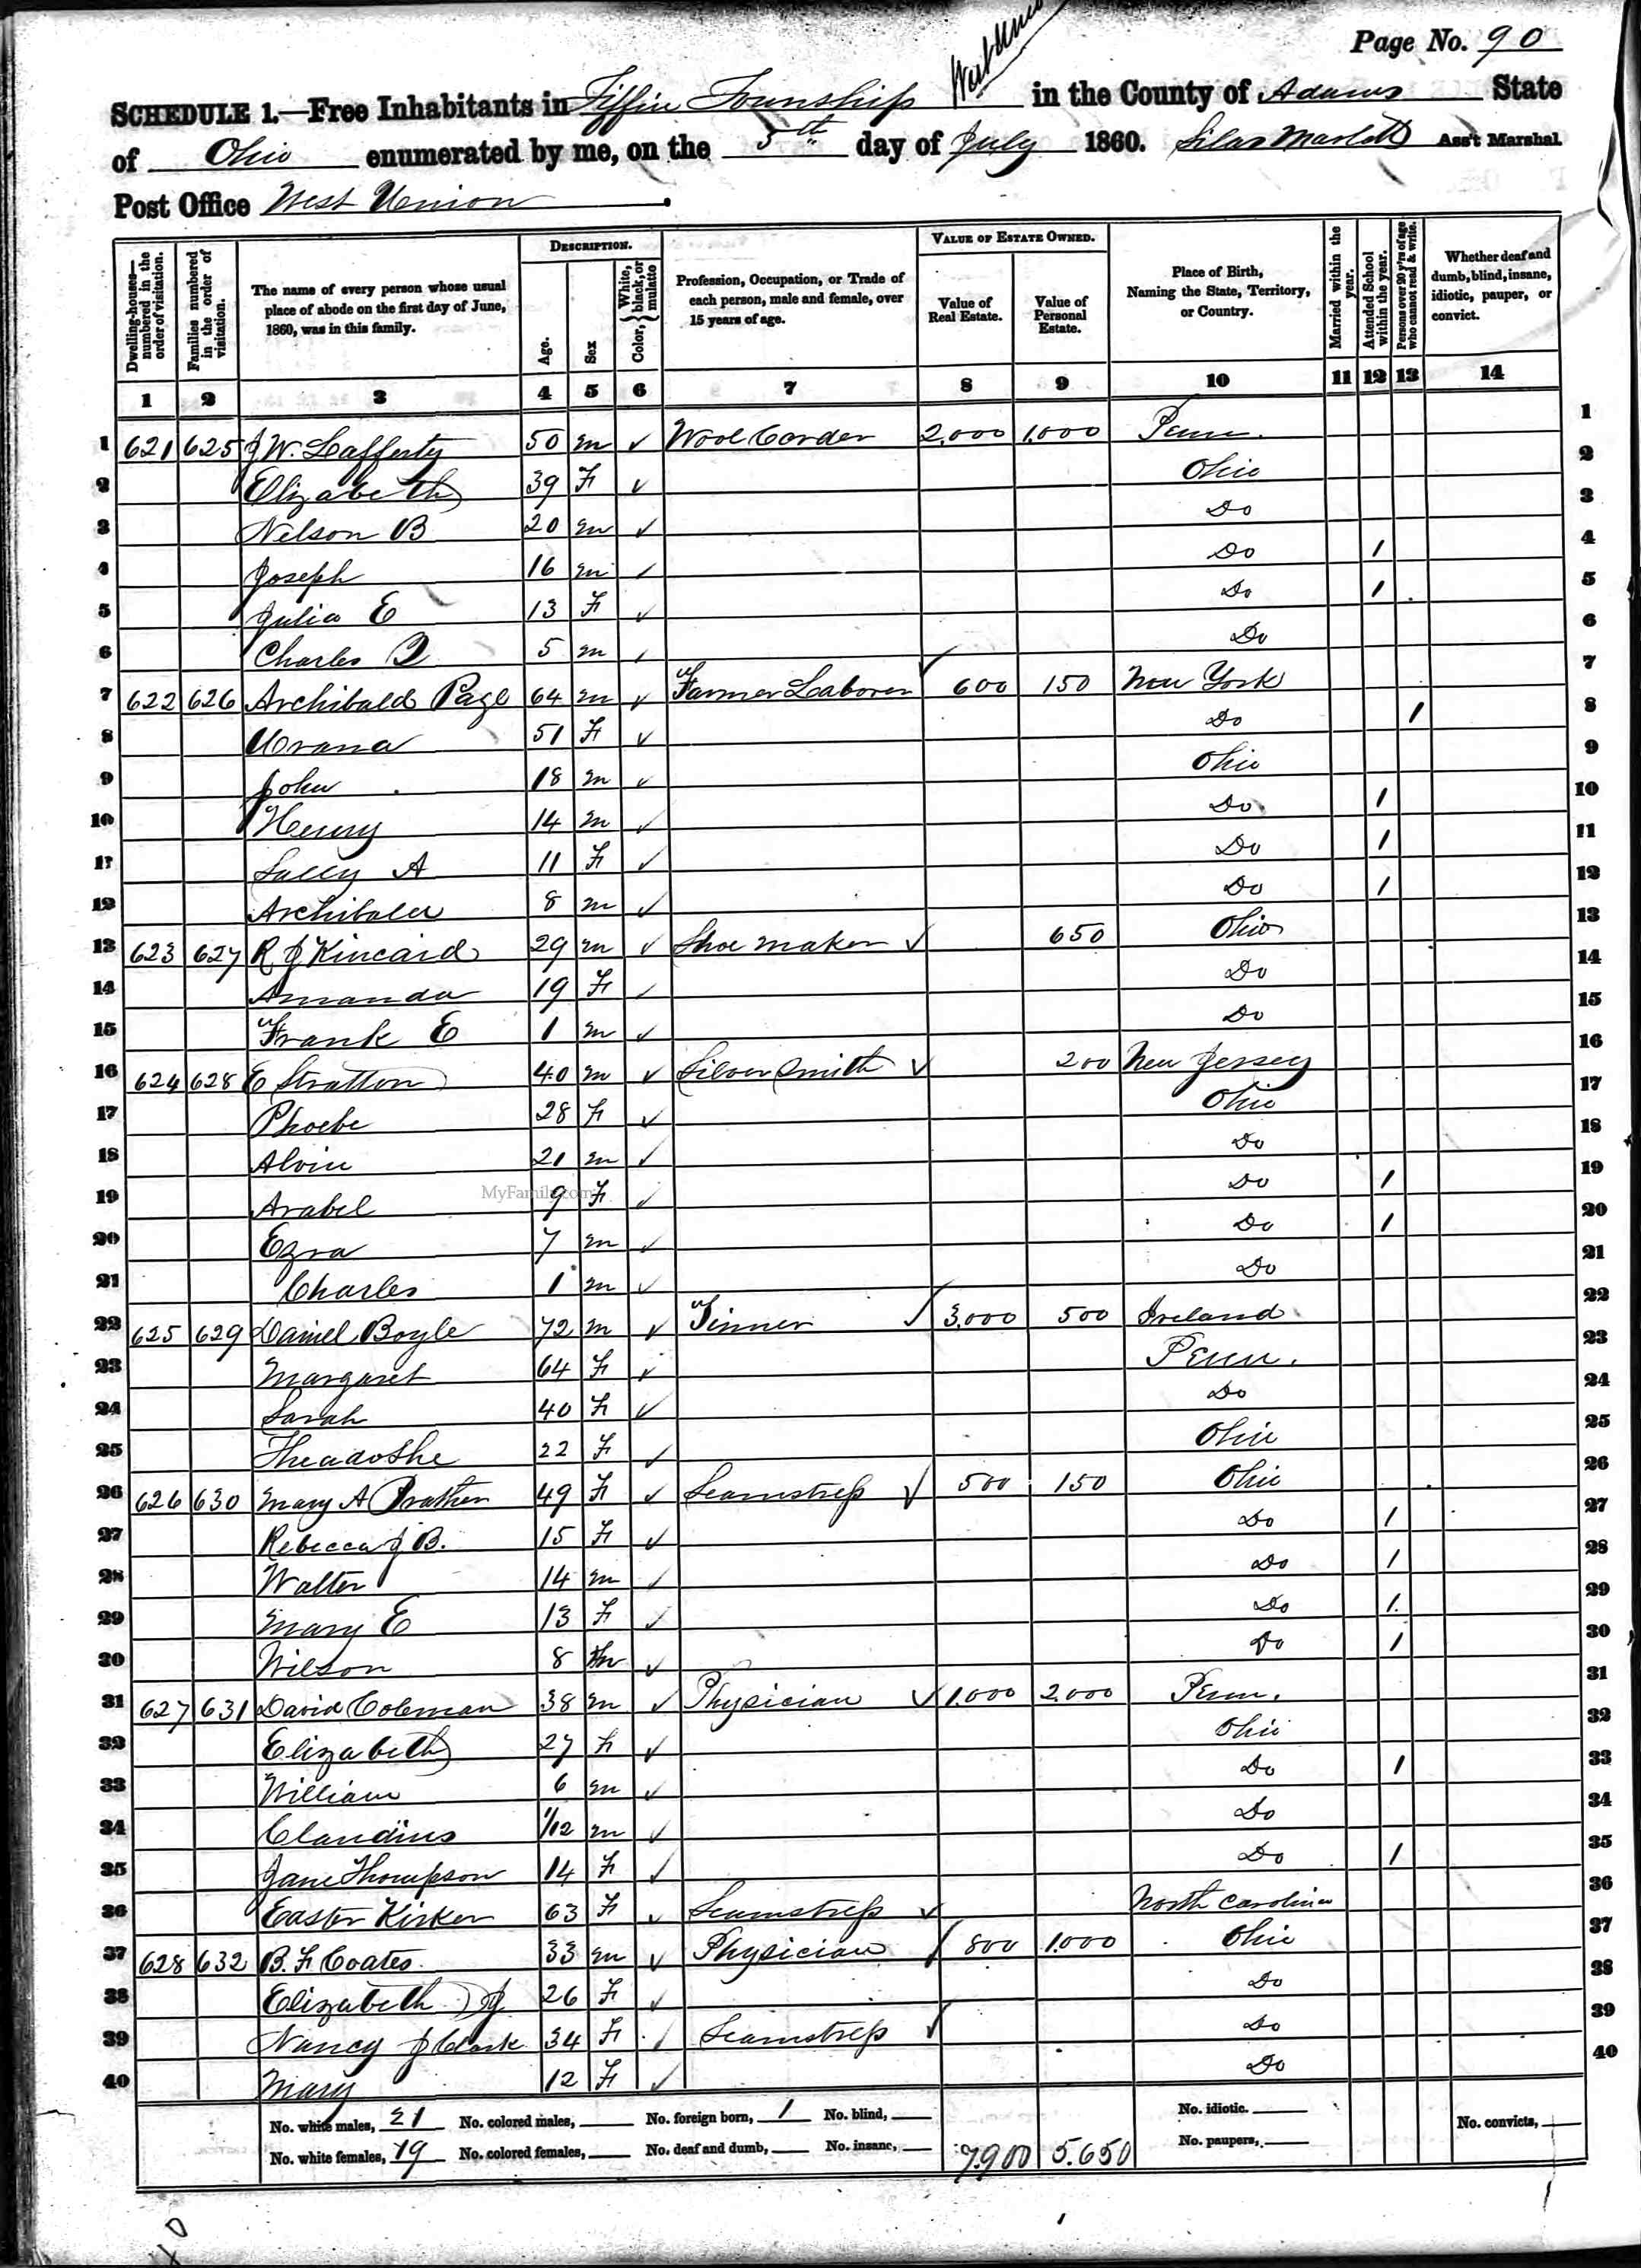 Page No. 90
SCHEDULE 1.—Free Inhabitants in Tiffin Township in the County of Adams State
of Ohio enumerated by me, on the 5th day of July 1860. Silas Marlatt Ass't Marshal.
Post Office West Union.
Dwelling-houses—numbered in the order of visitation. Families numbered in the order of visitation. The name of every person whose usual place of abode on the first day of June, 1860, was in this family. DESCRIPTION. Age. Sex Color, { White, black, or mulatto Profession, Occupation, or Trade of each person, male and female, over 15 years of age. VALUE OF ESTATE OWNED. Value of Real Estate. Value of Personal Estate. Place of Birth, Naming the State, Territory, or Country. Married within the year. Attended School within the year. Persons over 20 y'rs of age who cannot read & write. Whether deaf and dumb, blind, insane, idiotic, pauper, or convict.
1 2 3 4 5 6 7 8 9 10 11 12 13 14
1 621 625 J W. Lafferty 50 m ✓ Wool Carder 2,000 1,000 Penn. 1
2 Elizabeth 39 F ✓ Ohio 2
3 Nelson B 20 m ✓ Do 3
4 Joseph 16 m ✓ Do 1 4
5 Julia E 13 F ✓ Do 1 5
6 Charles 5 m ✓ Do 6
7 622 626 Archibald Page 64 m ✓ Farmer Laborer ✓ 600 150 New York 7
8 Urana 51 F ✓ Do 1 8
9 John 18 m ✓ Ohio 9
10 Henry 14 m ✓ Do 1 10
11 Sally A 11 F ✓ Do 1 11
12 Archibald 8 m ✓ Do 1 12
13 623 627 R J Kincaid 29 m ✓ Shoe maker ✓ 650 Ohio 13
14 Amanda 19 F ✓ Do 14
15 Frank E 1 m ✓ Do 15
16 624 628 E Stratton 40 m ✓ Silver Smith ✓ 200 New Jersey 16
17 Phoebe 28 F ✓ Ohio 17
18 Alvin 21 m ✓ Do 18
19 Arabel 9 F ✓ Do 1 19
MyFamily.com
20 Ezra 7 m ✓ Do 1 20
21 Charles 1 m ✓ Do 21
22 625 629 Daniel Boyle 72 m ✓ Tinner ✓ 3,000 500 Ireland 22
23 Margaret 64 F ✓ Penn. 23
24 Sarah 40 F ✓ Do 24
25 Theadoshe 22 F ✓ Ohio 25
26 626 630 Mary A Prather 49 F ✓ Seamstress ✓ 500 150 Ohio 26
27 Rebecca J B. 15 F ✓ Do 1 27
28 Walter 14 m ✓ Do 1 28
29 Mary E 13 F ✓ Do 1 29
30 Wilson 8 m ✓ Do 1 30
31 627 631 David Coleman 38 m ✓ Physician ✓ 1,000 2,000 Penn. 31
32 Elizabeth 27 F ✓ Ohio 32
33 William 6 m ✓ Do 1 33
34 Claudius 1/12 m ✓ Do 34
35 Jane Thompson 14 F ✓ Do 1 35
36 Easter Kirker 63 F ✓ Seamstress ✓ North Carolina 36
37 628 632 B. F Coates 33 m ✓ Physician ✓ 800 1,000 Ohio 37
38 Elizabeth J 26 F ✓ Do 38
39 Nancy J Clark 34 F ✓ Seamstress ✓ Do 39
40 Mary 12 F ✓ Do 40
No. white males, 21 No. colored males, No. foreign born, 1 No. blind, No. idiotic. No. convicts,
No. white females, 19 No. colored females, No. deaf and dumb, No. insane, 7.900 5.650 No. paupers,